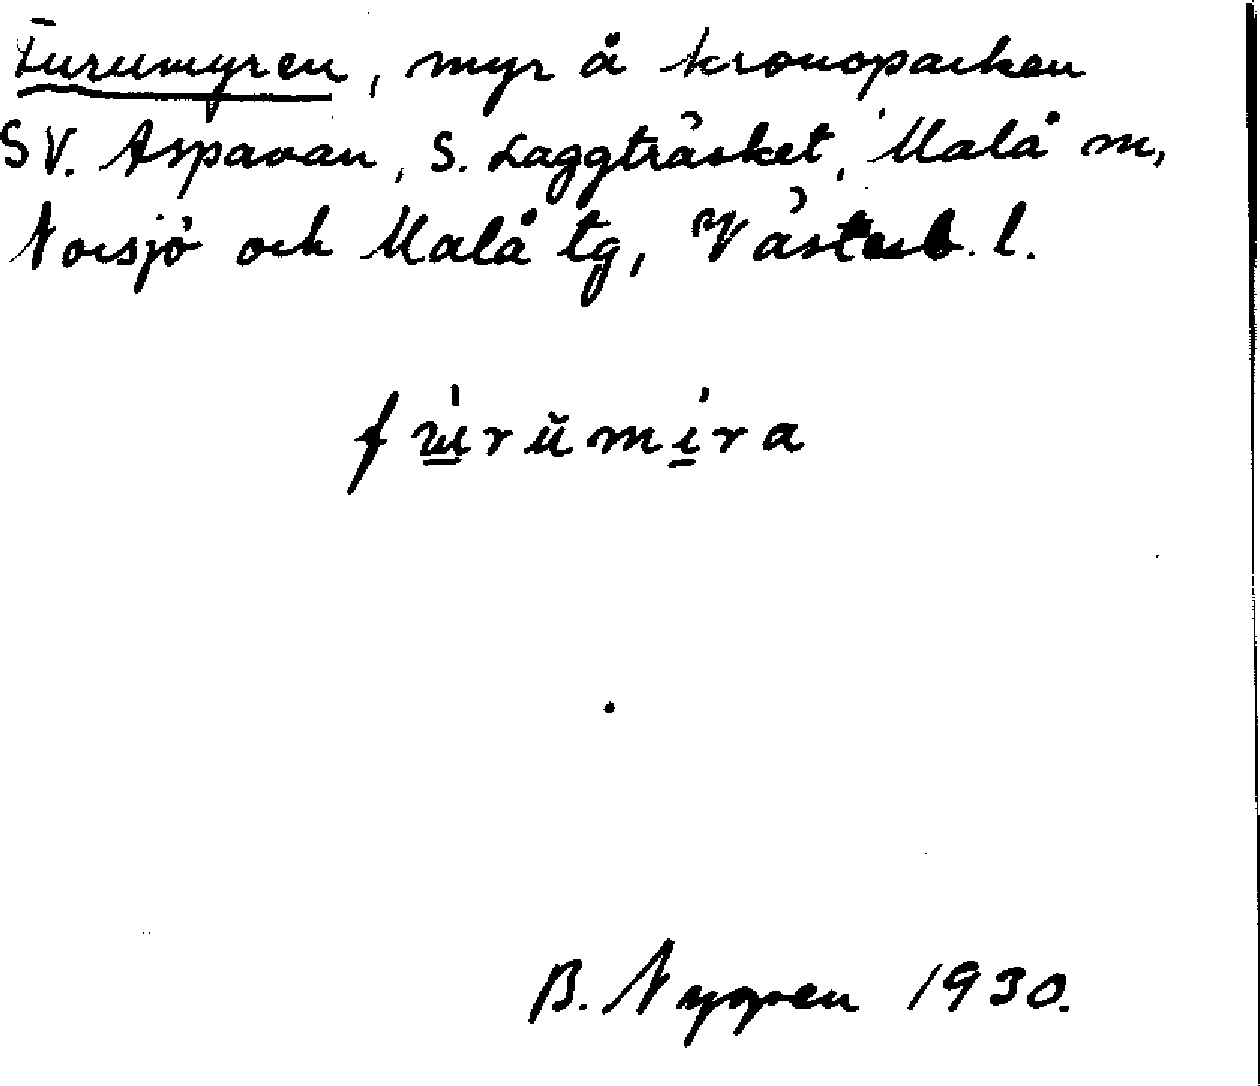 Furumyren, myr å kronoparken
SV. Aspavan, S. Laggträsket, Malå m,
Norsjö och Malå tg, Västerb. l.
fùrŭmira
B. Nygren 1930.